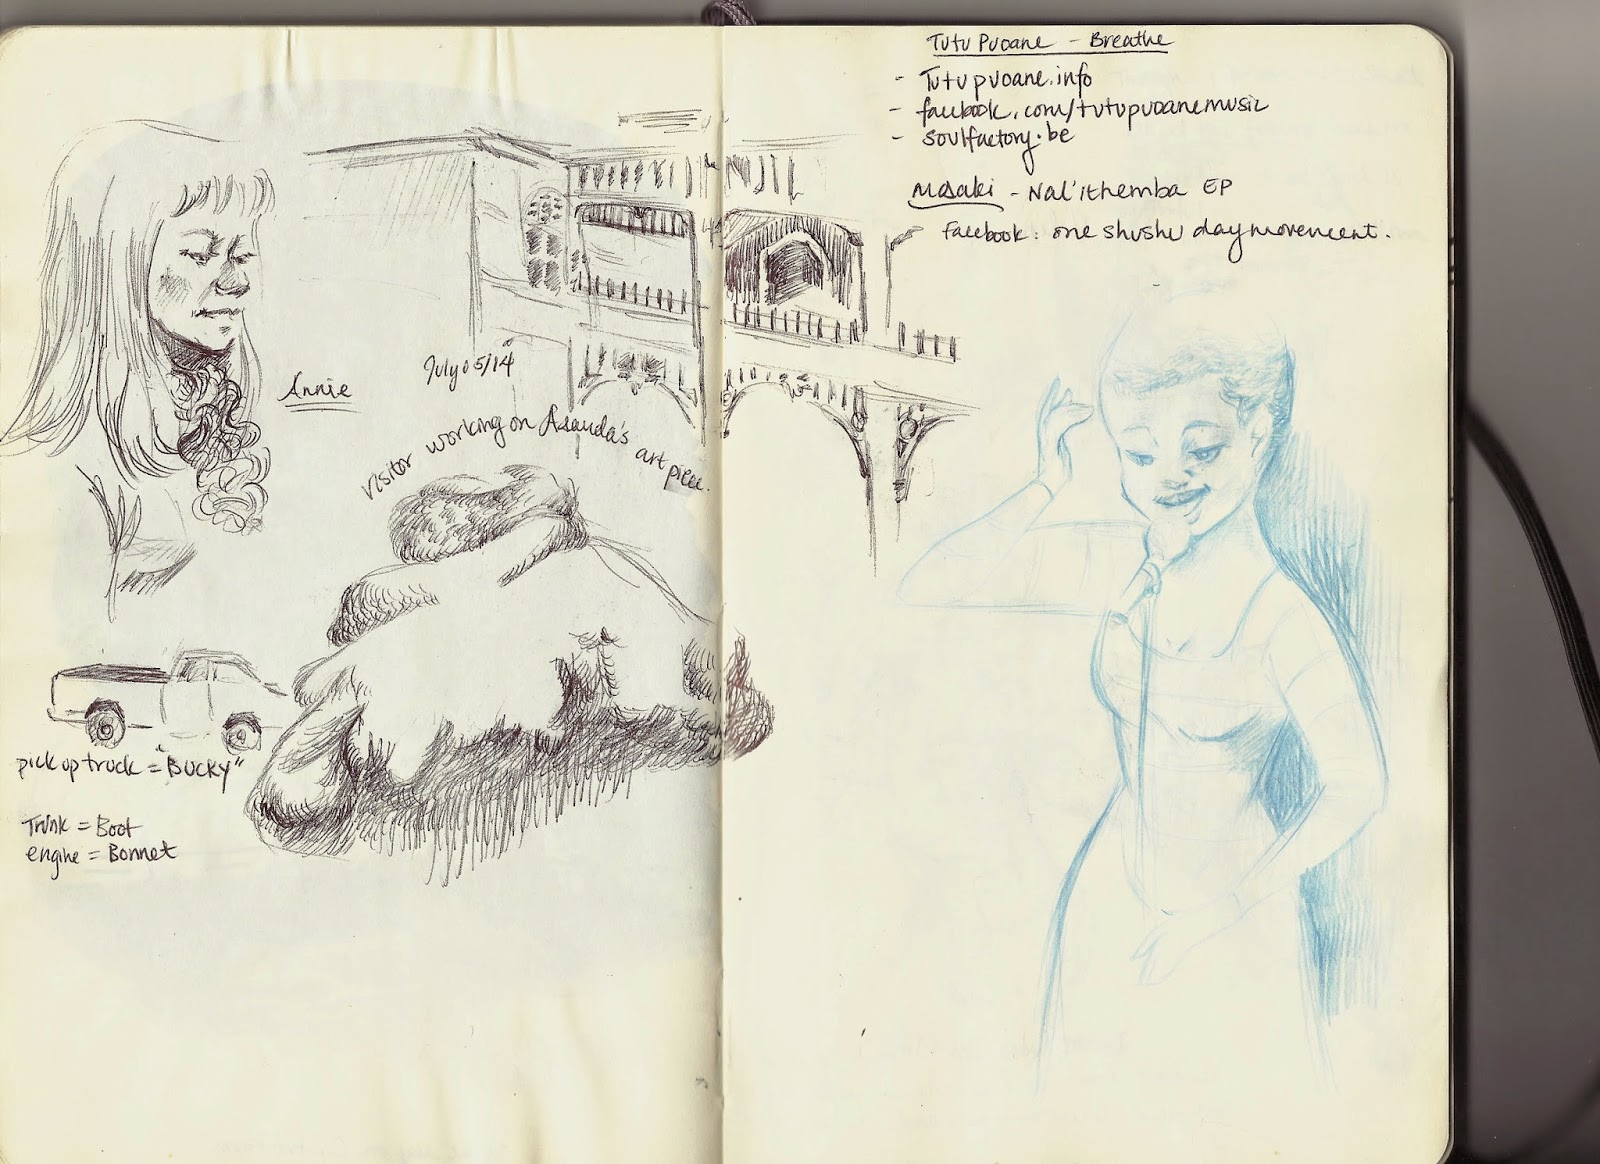 Annie
July 05/14
visitor working on Asanda's art piece.
pick up truck = "BUCKY"
Trunk = Boot
engine = Bonnet
Tutu Puoane - Breathe
- Tutupuoane.info
- facebook.com/tutupuoanemusic
- soulfactory.be
Masaki - Nal'ithemba EP
Facebook: one shushu day movement.